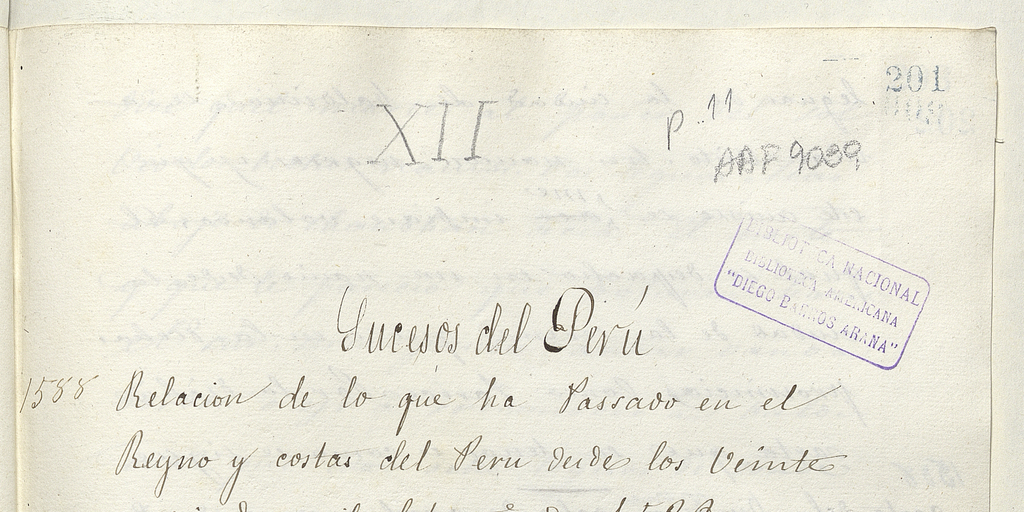 201
XII
p. 11
AAF 9039
BIBLIOTECA NACIONAL
BIBLIOTECA AMERICANA
"DIEGO BARROS ARANA"
Sucesos del Perú
1588 Relacion de lo que ha Passado en el
Reyno y costas del Peru desde los Veinte